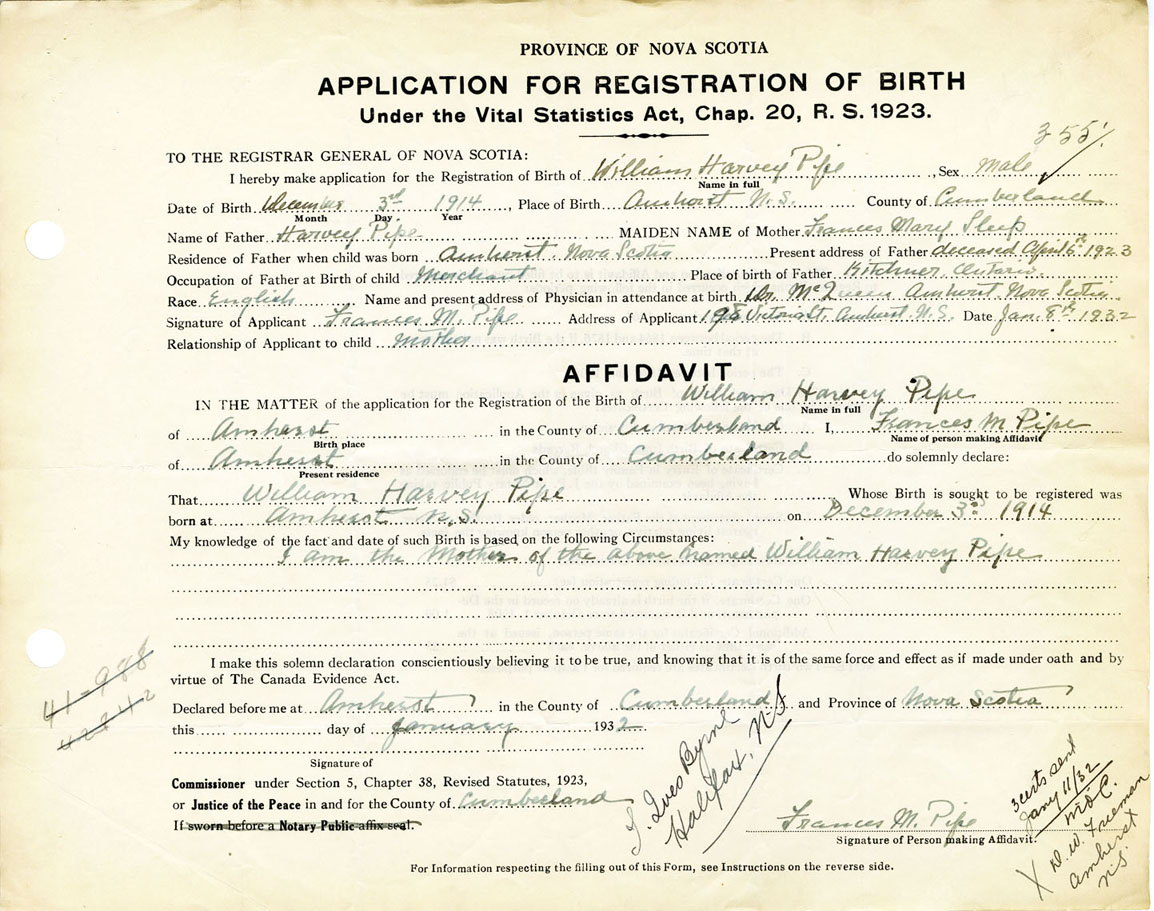 PROVINCE OF NOVA SCOTIA
APPLICATION FOR REGISTRATION OF BIRTH
Under the Vital Statistics Act, Chap. 20, R. S. 1923.
355
TO THE REGISTRAR GENERAL OF NOVA SCOTIA:
I hereby make application for the Registration of Birth of William Harvey Pipe, Sex Male
Name in full
Date of Birth December 3rd 1914, Place of Birth Amherst N.S. County of Cumberland
Month Day Year
Name of Father Harvey Pipe MAIDEN NAME of Mother Frances Mary Sleep
Residence of Father when child was born Amherst Nova Scotia Present address of Father deceased April 6th 1923
Occupation of Father at Birth of child Merchant Place of birth of Father Kitchner Ontario
Race English Name and present address of Physician in attendance at birth Dr. McQueen Amherst Nova Scotia
Signature of Applicant Frances M. Pipe Address of Applicant 198 Victoria St. Amherst N.S. Date Jan. 8th 1932
Relationship of Applicant to child Mother
AFFIDAVIT
IN THE MATTER of the application for the Registration of the Birth of William Harvey Pipe
Name in full
of Amherst in the County of Cumberland I, Frances M Pipe
Birth place Name of person making Affidavit
of Amherst in the County of Cumberland do solemnly declare:
Present residence
That William Harvey Pipe Whose Birth is sought to be registered was
born at Amherst N.S. on December 3rd 1914
My knowledge of the fact and date of such Birth is based on the following Circumstances:
I am the Mother of the above named William Harvey Pipe
I make this solemn declaration conscientiously believing it to be true, and knowing that it is of the same force and effect as if made under oath and by
virtue of The Canada Evidence Act.
Declared before me at Amherst in the County of Cumberland and Province of Nova Scotia
this day of January 1932
Signature of
Commissioner under Section 5, Chapter 38, Revised Statutes, 1923,
or Justice of the Peace in and for the County of Cumberland
If sworn before a Notary Public affix seal.
Frances M. Pipe
Signature of Person making Affidavit.
For Information respecting the filling out of this Form, see Instructions on the reverse side.
Byrne
Halifax, N.S
3 certs sent
Jany 11/32
X D. W. Freeman
Amherst
N.S.